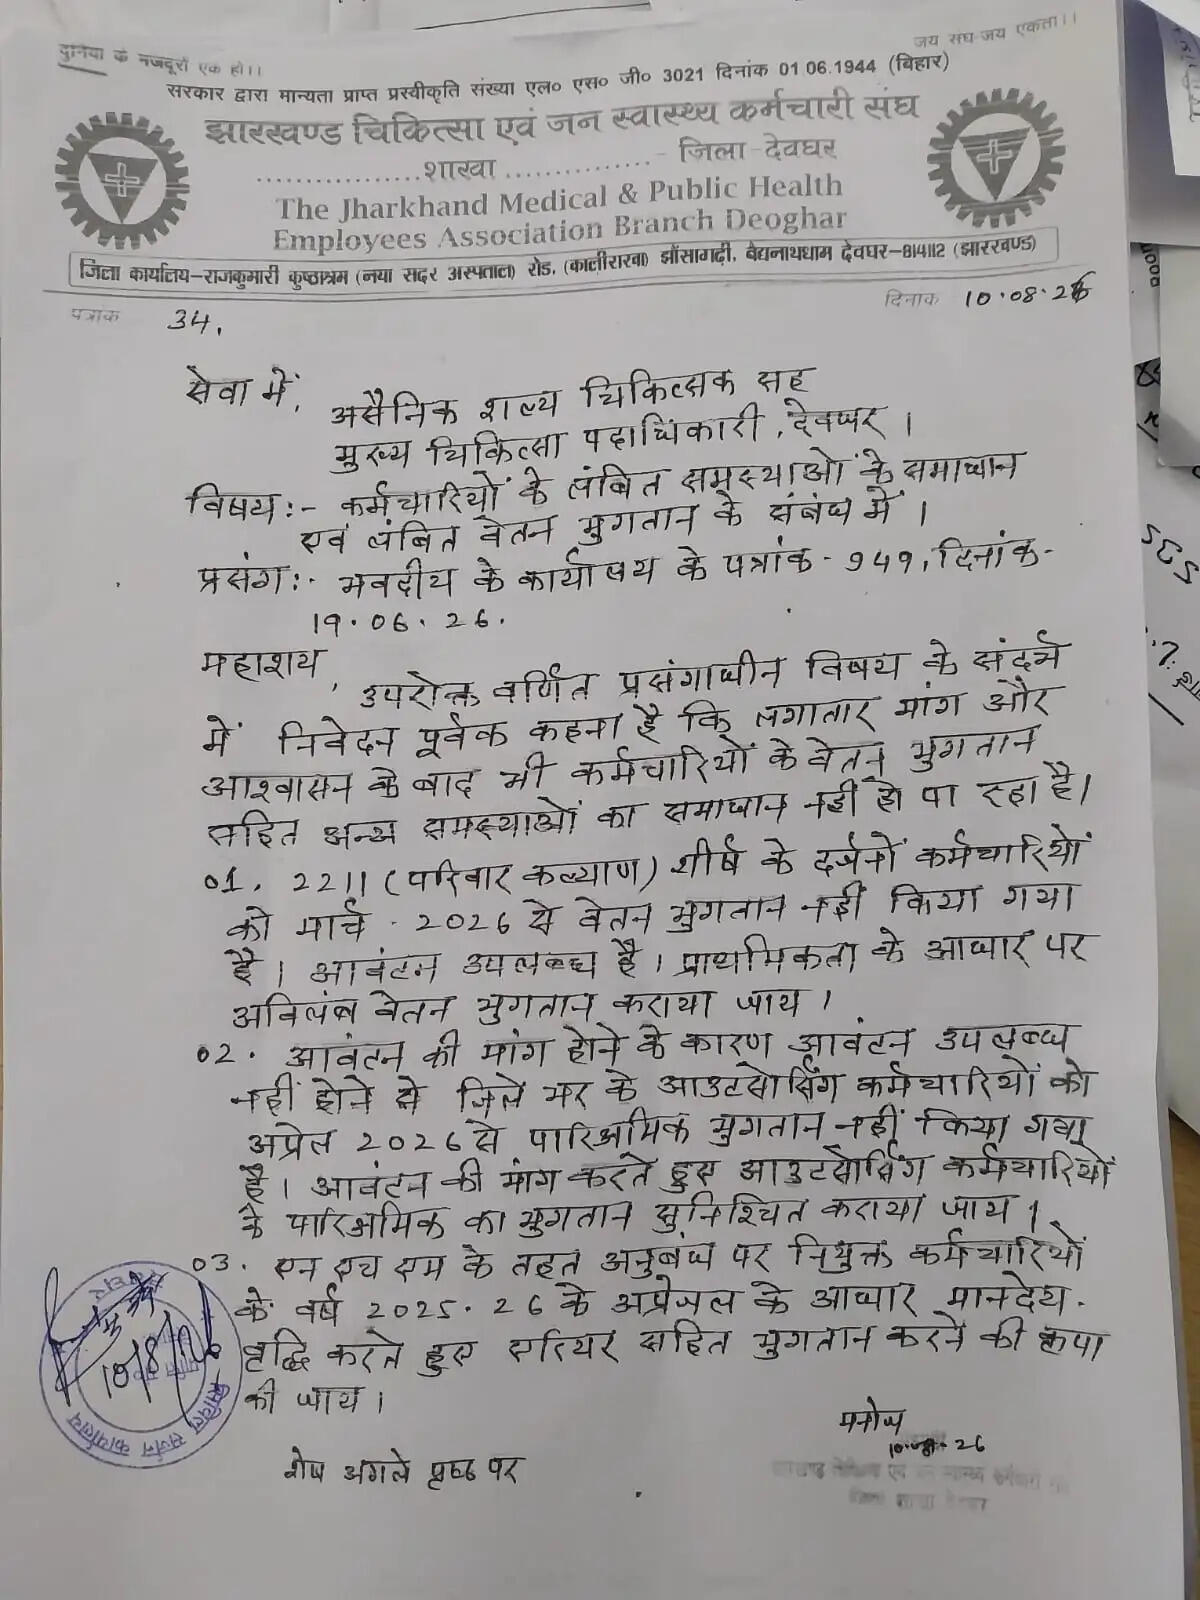 दुनिया के मजदूरों एक हो।।
जय संघ-जय एकता।।
सरकार द्वारा मान्यता प्राप्त प्रस्वीकृति संख्या एल० एस० जी० 3021 दिनांक 01.06.1944 (बिहार)
झारखण्ड चिकित्सा एवं जन स्वास्थ्य कर्मचारी संघ
..................शाखा .................. - जिला-देवघर
The Jharkhand Medical & Public Health
Employees Association Branch Deoghar
जिला कार्यालय-राजकुमारी कुष्ठाश्रम (नया सदर अस्पताल) रोड, (कालीराखा) झौंसागढ़ी, बैद्यनाथधाम देवघर-814112 (झारखण्ड)
पत्रांक 34.
दिनांक 10.08.26
सेवा में,
असैनिक शल्य चिकित्सक सह
मुख्य चिकित्सा पदाधिकारी, देवघर।
विषय:- कर्मचारियों के लंबित समस्याओं के समाधान
एवं लंबित वेतन भुगतान के संबंध में।
प्रसंग:- भवदीय के कार्यालय के पत्रांक - 949, दिनांक-
19.06.26.
महाशय,
उपरोक्त वर्णित प्रसंगाधीन विषय के संदर्भ
में निवेदन पूर्वक कहना है कि लगातार मांग और
आश्वासन के बाद भी कर्मचारियों के वेतन भुगतान
सहित अन्य समस्याओं का समाधान नहीं हो पा रहा है।
01. 2211 (परिवार कल्याण) शीर्ष के दर्जनों कर्मचारियों
को मार्च - 2026 से वेतन भुगतान नहीं किया गया
है। आवंटन उपलब्ध है। प्राथमिकता के आधार पर
अविलंब वेतन भुगतान कराया जाय।
02. आवंटन की मांग होने के कारण आवंटन उपलब्ध
नहीं होने से जिले भर के आउटसोर्सिंग कर्मचारियों को
अप्रेल 2026 से पारिश्रमिक भुगतान नहीं किया गया
है। आवंटन की मांग करते हुए आउटसोर्सिंग कर्मचारियों
के पारिश्रमिक का भुगतान सुनिश्चित कराया जाय।
03. एन एच एम के तहत अनुबंध पर नियुक्त कर्मचारियों
के वर्ष 2025-26 के अप्रेजल के आधार मानदेय-
वृद्धि करते हुए एरियर सहित भुगतान करने की कृपा
की जाय।
मनोज
10.08.26
शेष अगले पृष्ठ पर
सिविल सर्जन कार्यालय
10/8/26